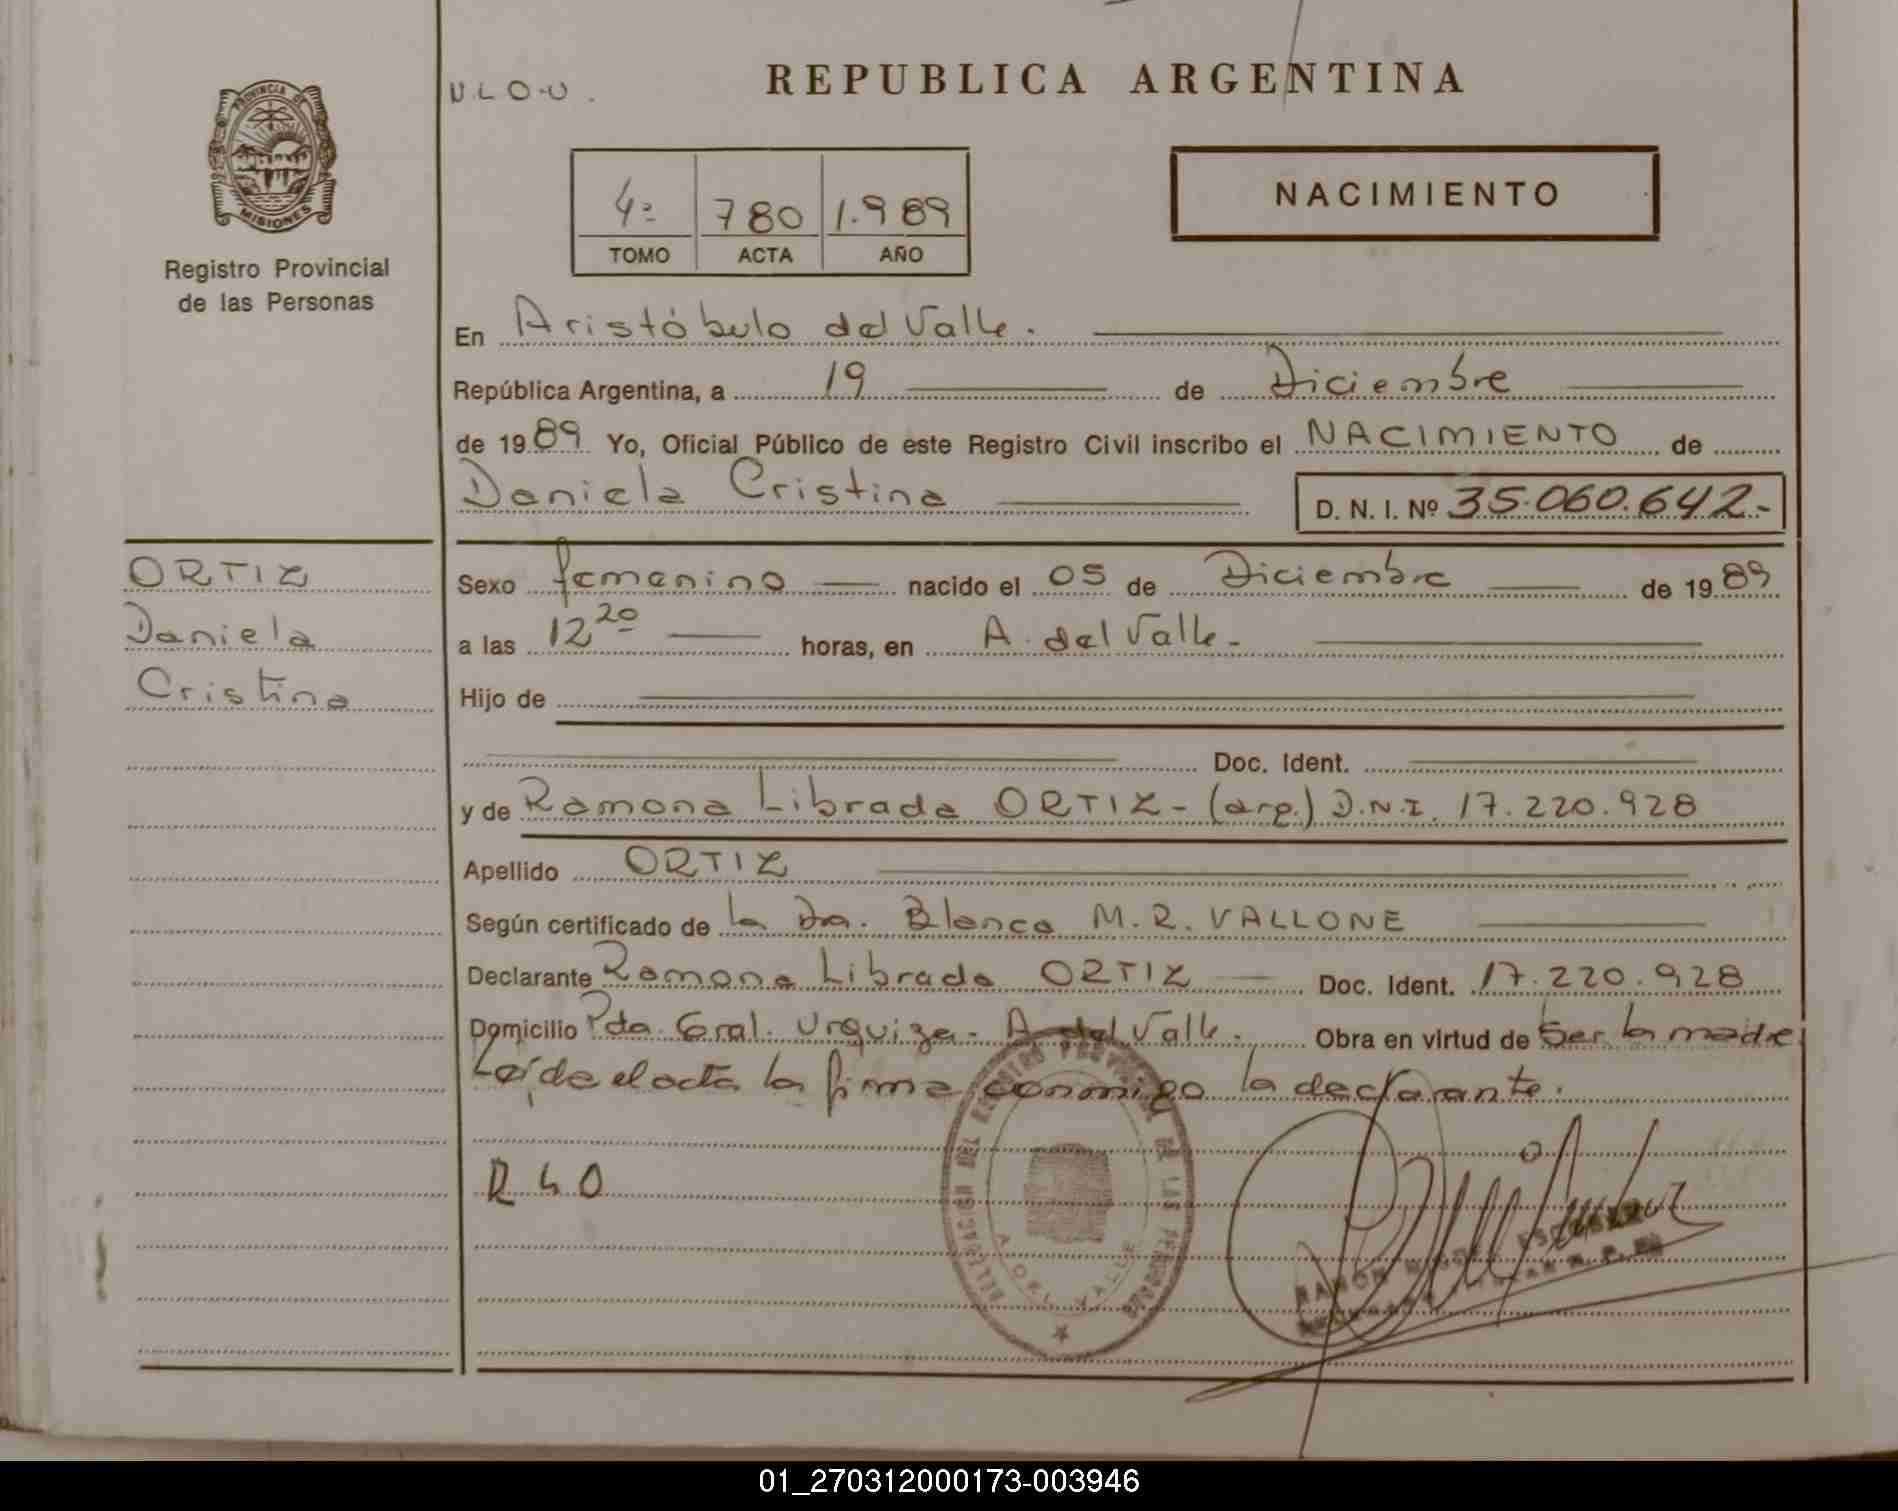 REPUBLICA ARGENTINA
PROVINCIA DE
MISIONES
Registro Provincial
de las Personas
4º 780 1.989
TOMO ACTA AÑO
NACIMIENTO
En Aristóbulo del Valle.
República Argentina, a 19 de Diciembre
de 1989 Yo, Oficial Público de este Registro Civil inscribo el NACIMIENTO de
Daniela Cristina D. N. I. Nº 35.060.642.-
ORTIZ
Daniela
Cristina
Sexo femenino nacido el 05 de Diciembre de 1989
a las 12 20 horas, en A. del Valle.-
Hijo de
Doc. Ident.
y de Ramona Librada ORTIZ - (arg.) D.N.I. 17.220.928
Apellido ORTIZ
Según certificado de la Dra. Blanca M. R. VALLONE
Declarante Ramona Librada ORTIZ Doc. Ident. 17.220.928
Domicilio Pda. Gral. Urquiza - A. del Valle. Obra en virtud de Ser la madre
Leída el acta la firma conmigo la declarante.
R 40
DELEGACION DEL REGISTRO PROVINCIAL DE LAS PERSONAS
A. DEL VALLE
RAMÓN
01_270312000173-003946